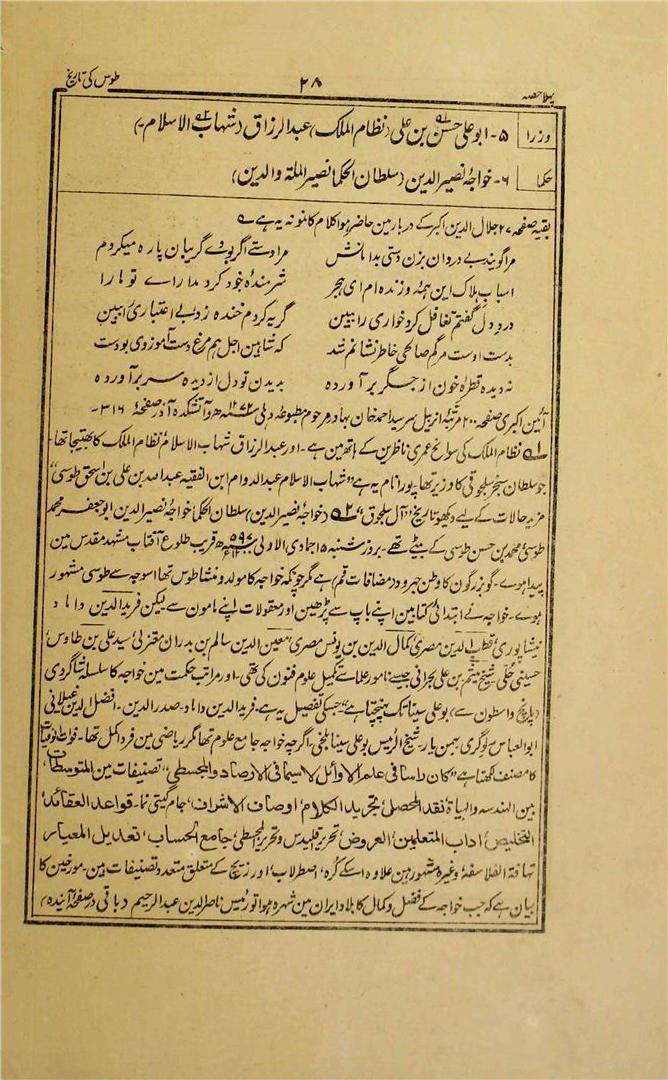 پہلا حصہ
۲۸
طوس کی تاریخ
وزرا ۵- ابو علی حسن بن علی (نظام الملک) عبد الرزاق (شہاب الاسلام)
حکما ۶- خواجہ نصیر الدین (سلطان الحکما نصیر الملۃ والدین)
بقیہ صفحہ ۲۷ جلال الدین اکبر کے دربار مین حاضر ہوا کلام کا نمونہ یہ ہے
مرا گویند بے دردان بزن دستی بدامانش مرا دستے اگر بودے گریبان پارہ میکردم
اسباب ہلاک این ہمہ و زندہ ام اے ہجر شرمندہ خود کرد مدارائے تو مارا
درد دل گفتم تغافل کرد خواری را ببین گریہ کردم خندہ زد بے اعتباری را ببین
بدست اوست مرگم صالحی خاطر نشانم شد کہ شاہین اجل ہم مرغ دست آموز وی بودست
نہ دیدہ قطرۂ خون از جگر بر آوردہ بدیدن تو دل از دیدہ سر بر آوردہ
آئین اکبری صفحہ ۲۰۰ مرتبۂ آنریبل سر سید احمد خان بہادر مرحوم مطبوعہ دہلی ۱۲۷۲ھ و آتشکدہ آذر صفحہ ۳۱۶-
۱ نظام الملک کی سوانح عمری ناظرین کے ہاتھ مین ہے- اور عبد الرزاق شہاب الاسلام نظام الملک کا بھتیجا تھا-
جو سلطان سنجر سلجوقی کا وزیر تھا- پورا نام یہ ہے "شہاب الاسلام عبد الدوام ابن الفقیہ عبد اللہ بن علی بن اسحق طوسی"
مزید حالات کے لیے دیکھو تاریخ "آل سلجوق" ۲ (خواجہ نصیر الدین) سلطان الحکما خواجہ نصیر الدین ابو جعفر محمد
طوسی محمد بن حسن طوسی کے بیٹے تھے- بروز شنبہ ۱۵ جمادی الاولی ۵۹۷ھ قریب طلوع آفتاب مشہد مقدس مین
پیدا ہوے- گو بزرگون کا وطن جہرود (مضافات قم) ہے مگر چونکہ خواجہ کا مولد و منشا طوس تھا اسوجہ سے طوسی مشہور
ہوے- خواجہ نے ابتدائی کتابین اپنے باپ سے پڑھین اور معقولات اپنے مامون سے لیکن فرید الدین داماد
نیشاپوری قطب الدین مصری کمال الدین بن یونس مصری معین الدین سالم بن بدران معتزلی سید علی بن طاوس
حسینی حلی شیخ میثم بن علی بحرانی جیسے نامور علما سے تکمیل علوم فنون کی تھی- اور مراتب حکمت مین خواجہ کا سلسلہ شاگردی
(پانچ واسطون سے) بو علی سینا تک پہنچتا ہے" جسکی تفصیل یہ ہے- فرید الدین داماد- صدر الدین- افضل الدین غیلانی
ابو العباس لوگری بہمن یار- شیخ الرئیس بو علی سینا بلخی- اگرچہ خواجہ جامع علوم تھا مگر ریاضی مین فرد اکمل تھا- فوات الوفیات
کا مصنف لکھتا ہے "کان راسا فی علم الاوائل لا سیما فی الارصاد والمجسطی" تصنیفات مین المتوسطات
بین الہندسہ والہیاۃ نقد المحصل، تجرید الکلام، اوصاف الاشراف، جام گیتی نما- قواعد العقائد
التخلیص، اداب المتعلمین، العروض، تحریر اقلیدس و تحریر المجسطی، جامع الحساب، تعدیل المعیار
تہافۃ الفلاسفہ وغیرہ مشہور ہین علاوہ اسکے کرہ، اصطرلاب اور زیچ کے متعلق متعدد تصنیفات ہین- مورخین کا
بیان ہے کہ جب خواجہ کے فضل و کمال کا بلاد ایران مین شہرہ ہوا تو رئیس ناصر الدین عبد الرحیم (باقی در صفحہ آیندہ)